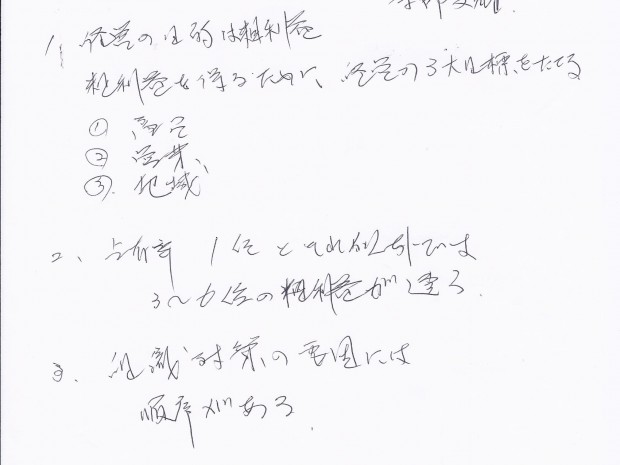 1、経営の目的は粗利益
粗利益を得るために、経営の3大目標をたてる
① 商品
② 営業、
③ 地域
2、占有率 1位とそれ以外では
3〜6倍の粗利益が違う.
3. 対策の要因には
順序がある.